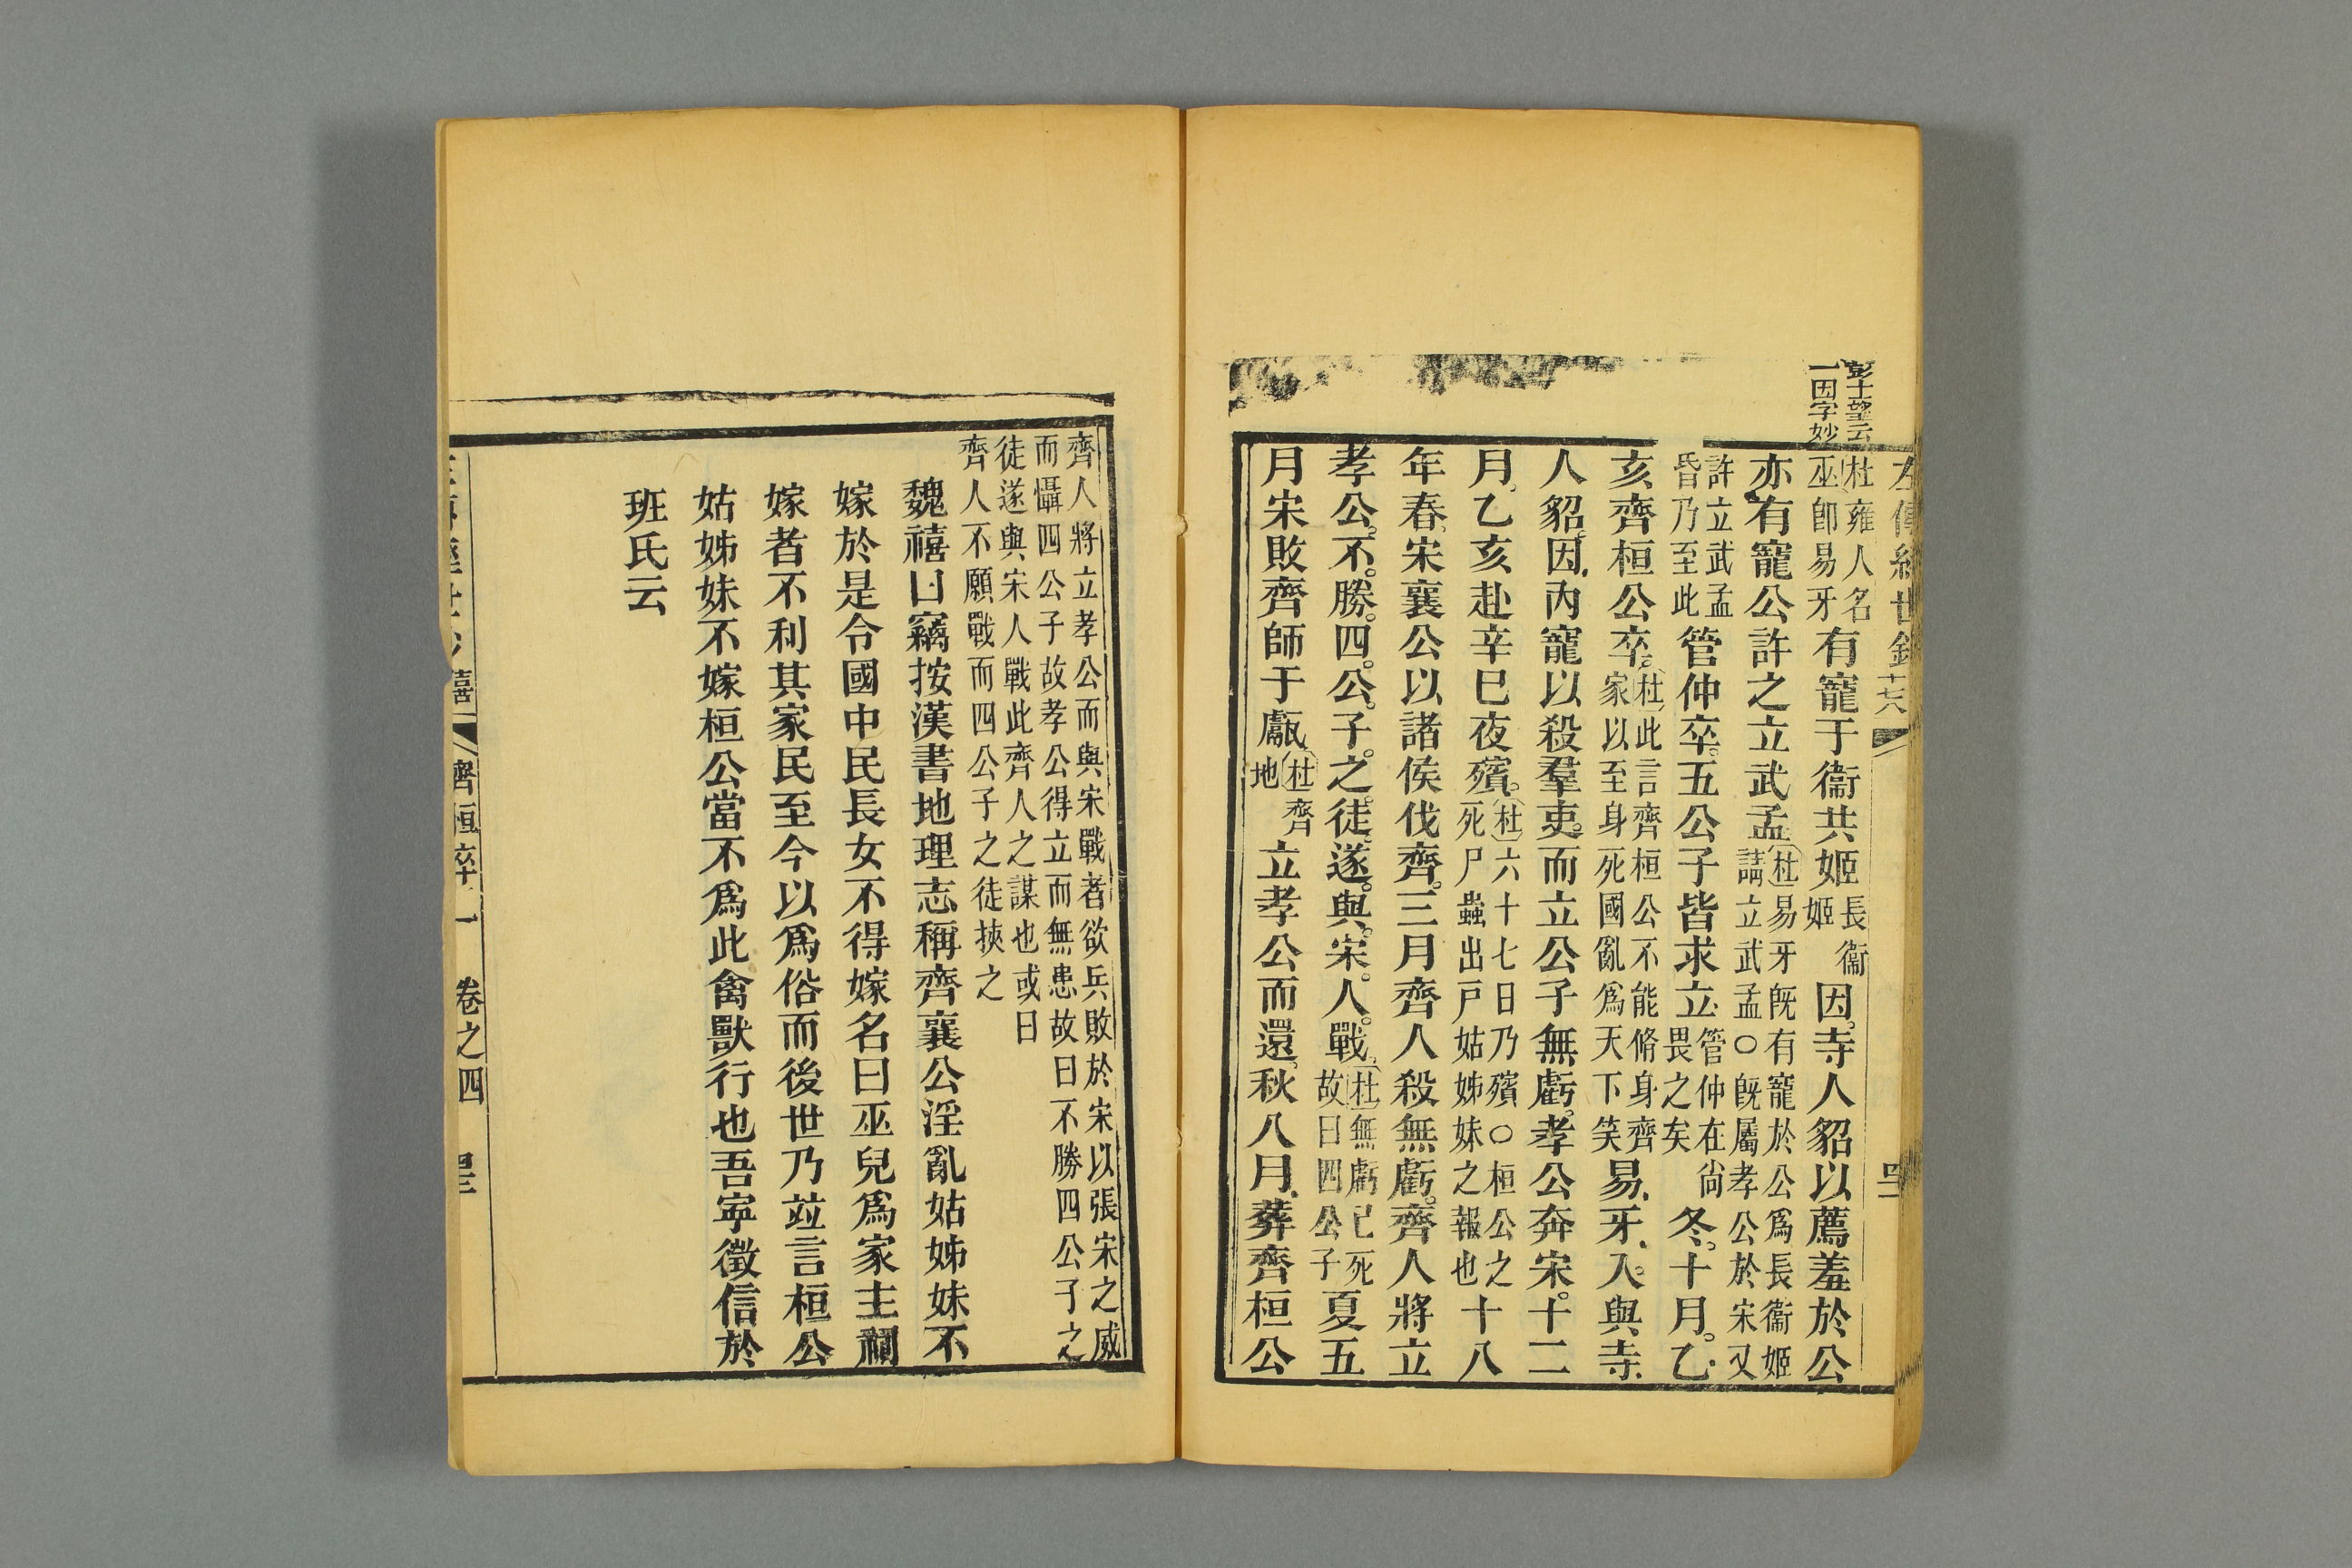 彭士望云
一因字妙
左傳經世鈔
杜雍人名
巫卽易牙
有寵于衞共姬
長衞
姬
因寺人貂以薦羞於公
亦有寵公許之立武孟
杜易牙旣有寵於公爲長衞姬
請立武孟○旣屬孝公於宋又
許立武孟
昏乃至此
管仲卒五公子皆求立
管仲在尙
畏之矣
冬十月乙
亥齊桓公卒
杜此言齊桓公不能脩身齊
家以至身死國亂爲天下笑
易牙入與寺
人貂因內寵以殺羣吏而立公子無虧孝公奔宋十二
月乙亥赴辛巳夜殯
杜六十七日乃殯○桓公之
死尸蟲出戸姑姊妹之報也
十八
年春宋襄公以諸侯伐齊三月齊人殺無虧齊人將立
孝公不勝四公子之徒遂與宋人戰
杜無虧已死
故曰四公子
夏五
月宋敗齊師于甗
杜齊
地
立孝公而還秋八月葬齊桓公
齊人將立孝公而與宋戰者欲兵敗於宋以張宋之威
而懾四公子故孝公得立而無患故曰不勝四公子之
徒遂與宋人戰此齊人之謀也或曰
齊人不願戰而四公子之徒挾之
魏禧曰竊按漢書地理志稱齊襄公淫亂姑姊妹不
嫁於是令國中民長女不得嫁名曰巫兒爲家主祠
嫁者不利其家民至今以爲俗而後世乃竝言桓公
姑姊妹不嫁桓公當不爲此禽獸行也吾寧徵信於
班氏云
齊桓卒一
卷之四